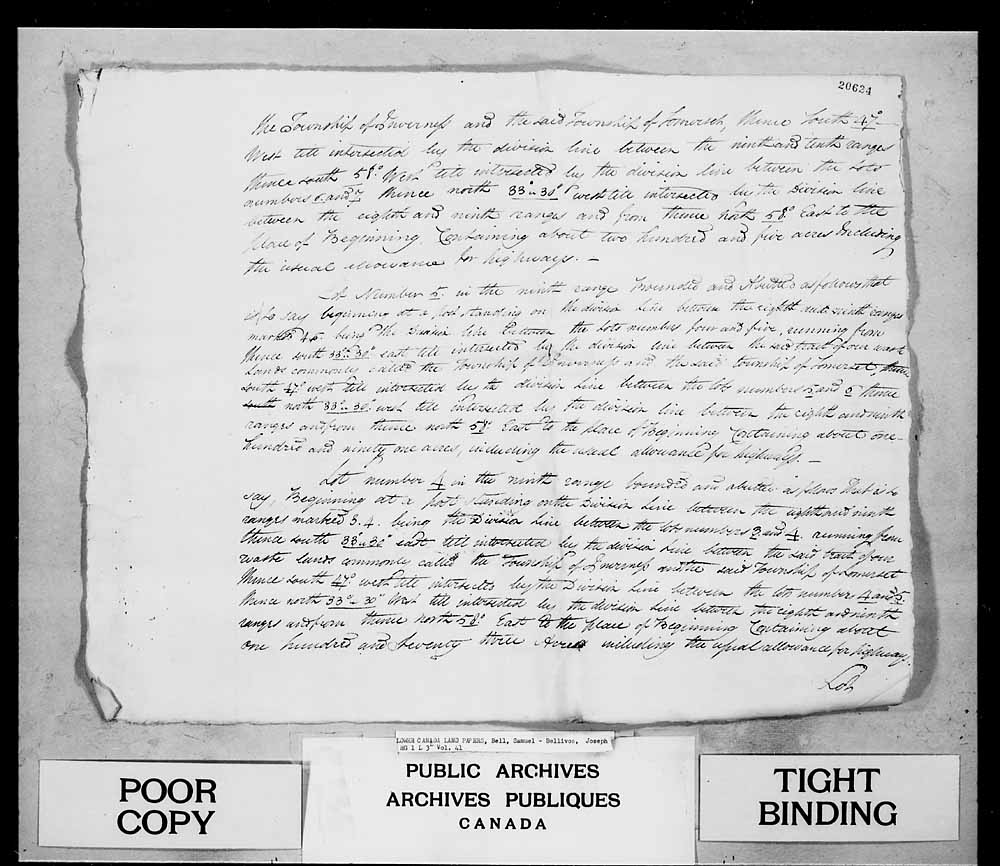 20624
the Township of Inverness and the said Township of Somerset, thence South 47°
West till intersected by the division line between the ninth and tenth ranges
thence south 58° West till intersected by the division line between the Lots
numbers 6 and 7 thence north 33°..30" west till intersected by the Division line
between the eighth and ninth ranges and from thence North 58° East to the
place of Beginning, Containing about two hundred and five acres Including
the usual allowance for highways. —
Lot Number 5 in the ninth range bounded and abutted as follows that
is to say beginning at a post standing on the division line between the eighth and ninth ranges
marked 4.5. being the Division line between the Lots numbers four and five, running from
thence south 33°..30" east till intersected by the division line between the said tract of our waste
Lands commonly called the Township of Inverness and the said township of Somerset, thence
south 47° west till intersected by the division line between the lots numbers 5 and thence
south north 33°..30" west till intersected by the division line between the eighth and ninth
ranges and from thence north 58° East to the place of Beginning Containing about one
hundred and ninety one acres, including the usual allowance for highways. —
Lot number 4 in the ninth range bounded and abutted as follows that is to
say, Beginning at a post standing on the Division Line between the eighth and ninth
ranges marked 3.4. being the Division line between the lot numbers 3 and 4. running from
thence south 33°..30" east till intersected by the division line between the said tract of our
waste lands commonly called the Township of Inverness and the said Township of Somerset
thence south 47° west till intersected by the Division Line between the lot number 4 and 5.
thence north 33°..30" West till intersected by the division line between the eighth and ninth
ranges and from thence north 58° East to the place of Beginning Containing about
one hundred and seventy three Acres including the usual allowance for highways.
Lot
LOWER CANADA LAND PAPERS, Bell, Samuel - Bellivoo, Joseph
RG 1 L 3" Vol. 41
POOR
COPY
PUBLIC ARCHIVES
ARCHIVES PUBLIQUES
CANADA
TIGHT
BINDING